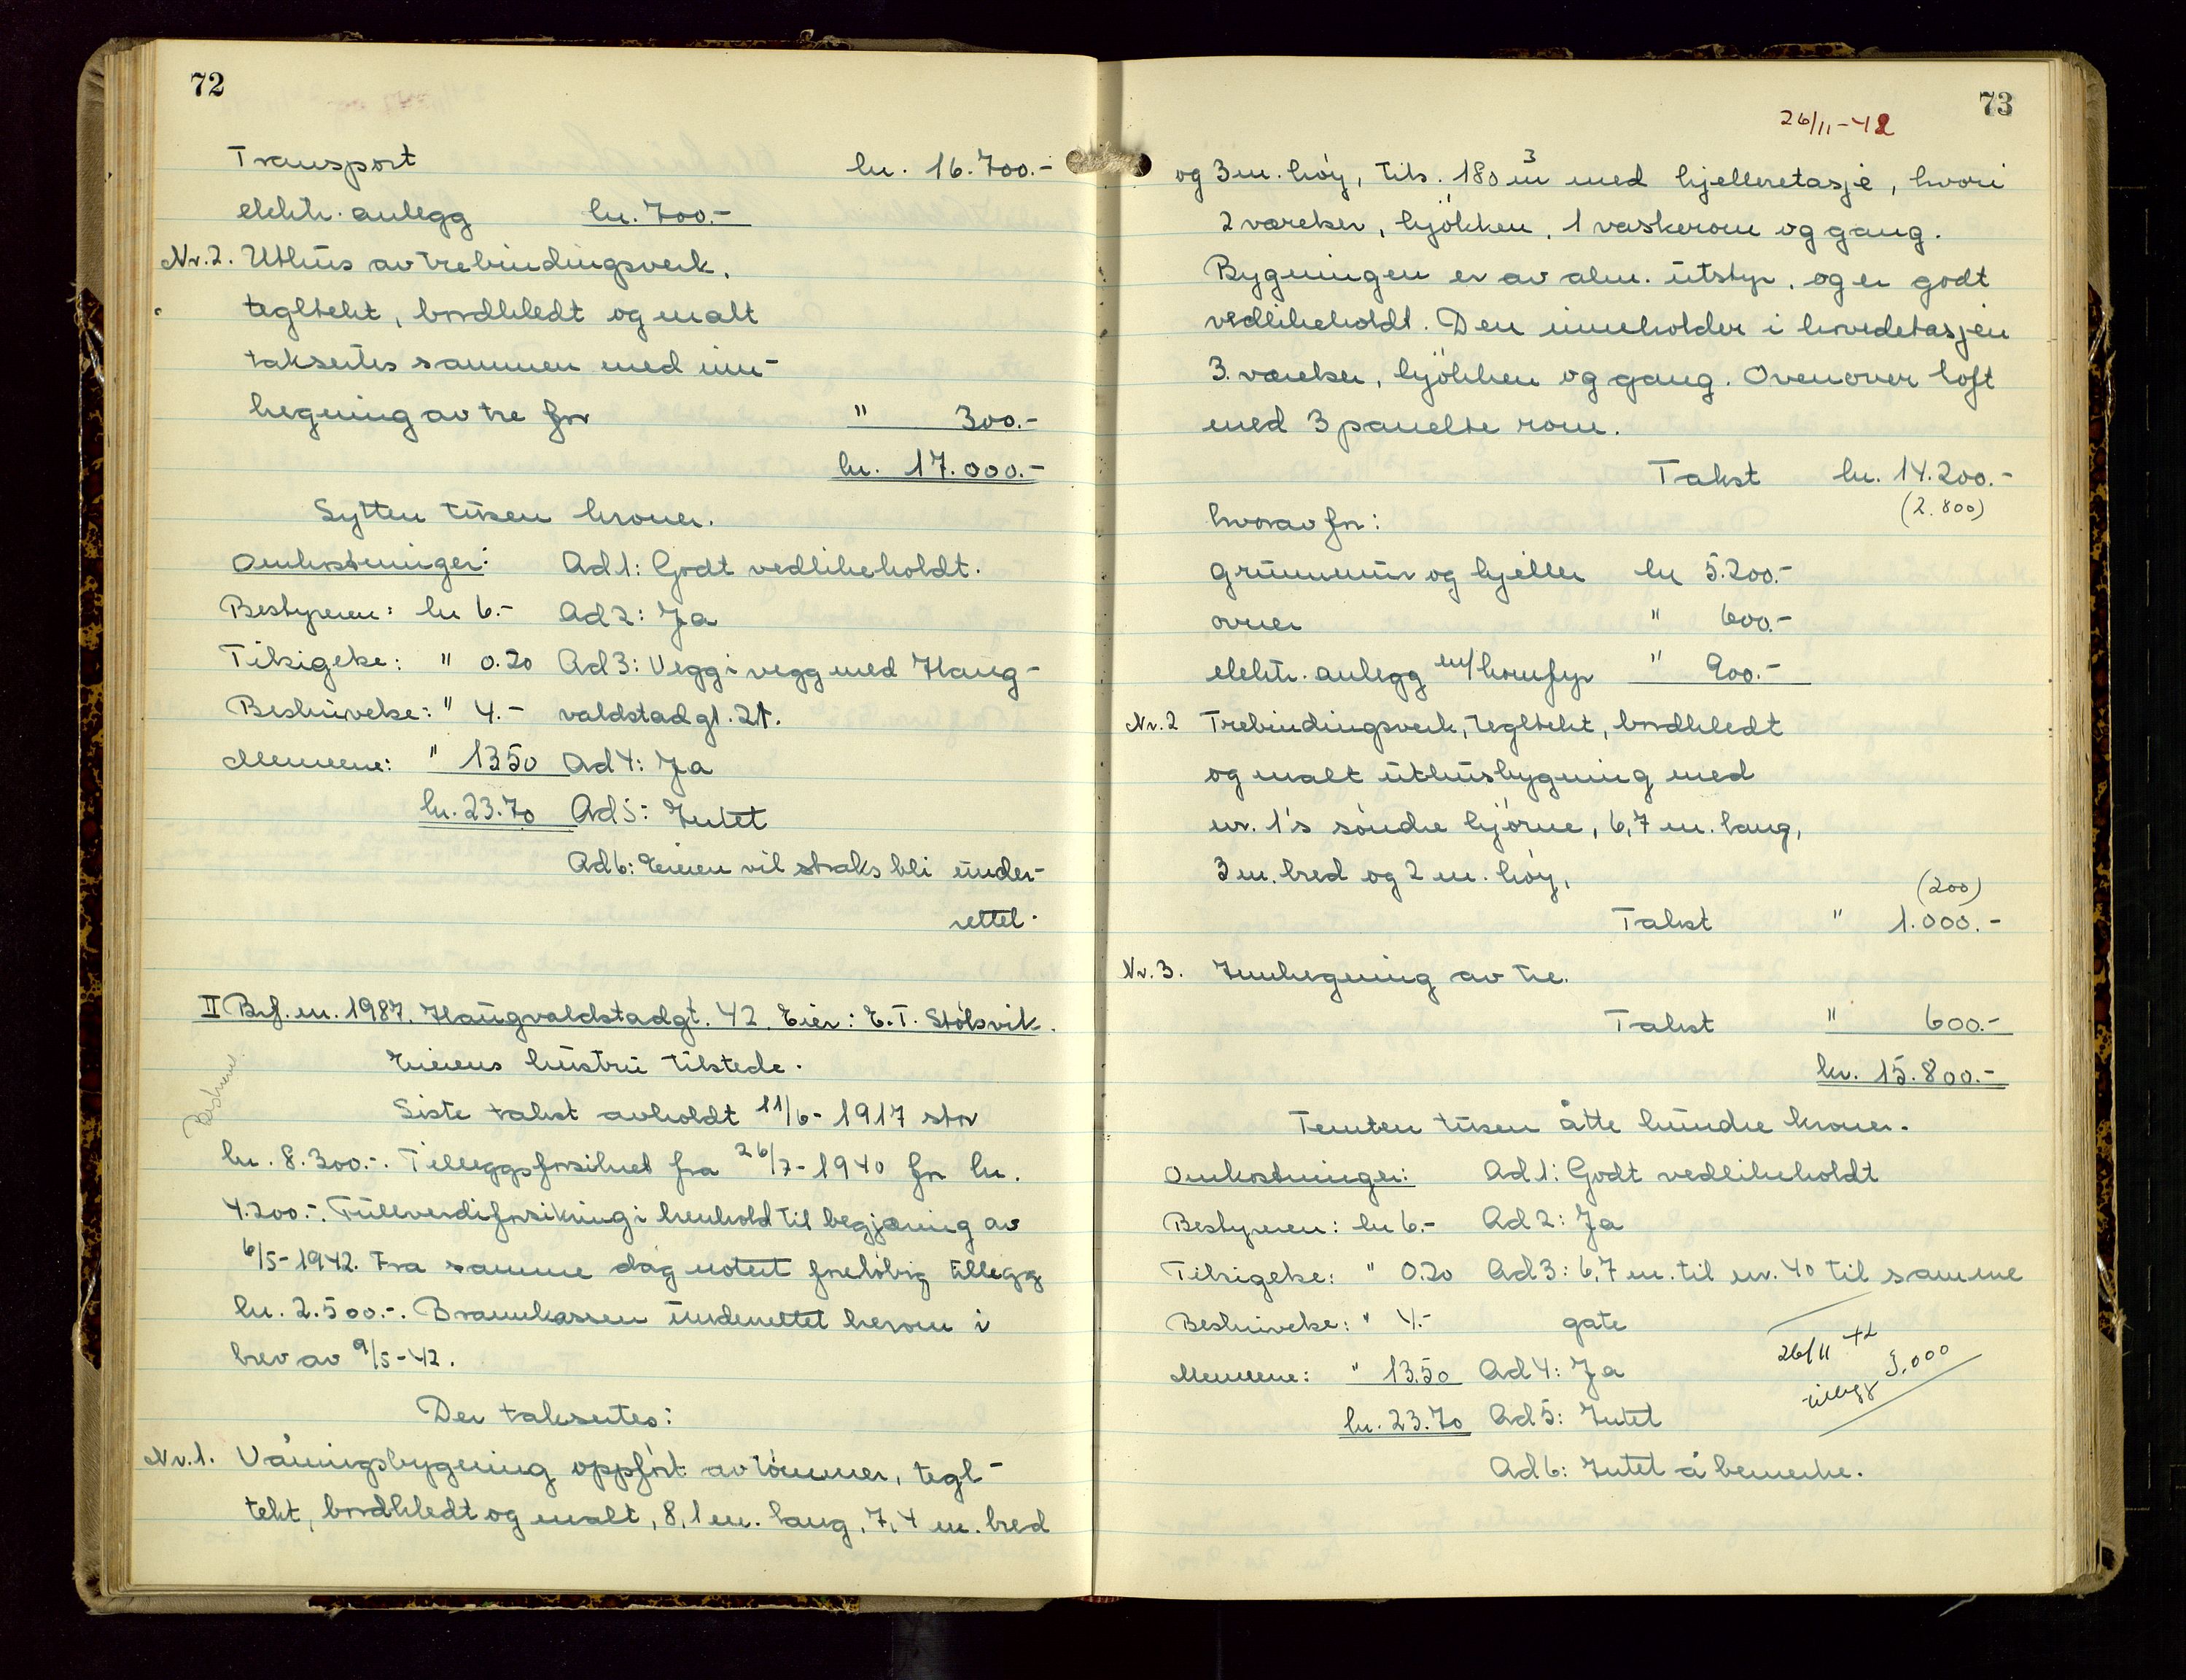 72
Transport kr. 16.700.-
elektr. anlegg kr. 700.-
Nr. 2. Uthus av trebindingsverk,
tegltekt, bordkledt og malt
takseres sammen med inn-
hegning av tre for " 300.-
kr. 17.000.-
Sytten tusen kroner.
Omkostninger: Ad 1: Godt vedlikeholdt.
Bestyreren: kr 6.- Ad 2: Ja
Tilsigelse: " 0.20 Ad 3: Vegg i vegg med Haug-
Beskrivelse: " 4.- valdstadgt. 21.
Mennene: " 13.50 Ad 4: Ja
kr. 23.70 Ad 5: Intet
Ad 6: Eieren vil straks bli under-
rettet.
II Brf. nr. 1987. Haugvaldstadgt. 42. Eier: E. T. Stölsvik.
Eierens hustru tilstede.
Siste takst avholdt 11/6-1917 stor
kr. 8.300.-. Tilleggsforsikret fra 26/7-1940 for kr.
4.200.-. Fullverdiforsikring i henhold til begjæring av
6/5-1942. Fra samme dag notert foreløbig tillegg
kr. 2.500.-. Brannkassen underrettet herom i
brev av 9/5-42.
Der takseres:
Nr. 1. Våningsbygning oppfört av tömmer, tegl-
tekt, bordkledt og malt, 8,1 m. lang, 7,4 m. bred
73
26/11-42
og 3 m. höy, tils. 180 m3 med kjelleretasje, hvori
2 værelser, kjökken, 1 vaskerom og gang.
Bygningen er av alm. utstyr, og er godt
vedlikeholdt. Den inneholder i hovedetasjen
3 værelser, kjökken og gang. Ovenover loft
med 3 panelte rom.
Takst kr. 14.200.-
(2.800)
hvorav for:
grunnmur og kjeller kr 5.200.-
ovner " 600.-
elektr. anlegg m/komfyr " 900.-
Nr. 2 Trebindingsverk, tegltekt, bordkledt
og malt uthusbygning med
nr. 1's söndre hjörne, 6,7 m. lang,
3 m. bred og 2 m. höy,
(200)
Takst " 1.000.-
Nr. 3. Innhegning av tre.
Takst " 600.-
kr. 15.800.-
Femten tusen åtte hundre kroner.
Omkostninger: Ad 1: Godt vedlikeholdt
Bestyreren: kr 6.- Ad 2: Ja
Tilsigelse: " 0.20 Ad 3: 6,7 m. til nr. 40 til samme
Beskrivelse: " 4.- gate
Mennene: " 13.50 Ad 4: Ja
kr. 23.70 Ad 5: Intet
Ad 6: Intet å bemerke.
26/11 42
tillegg 3.000